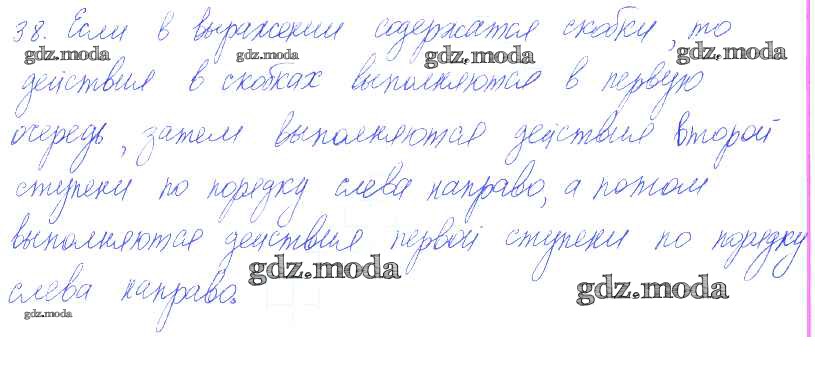 38. Если в выражении содержатся скобки, то
gdz.moda gdz.moda gdz.moda gdz.moda
действия в скобках выполняются в первую
очередь, затем выполняются действия второй
ступени по порядку слева направо, а потом
выполняются действия первой ступени по порядку
слева направо.
gdz.moda gdz.moda
gdz.moda